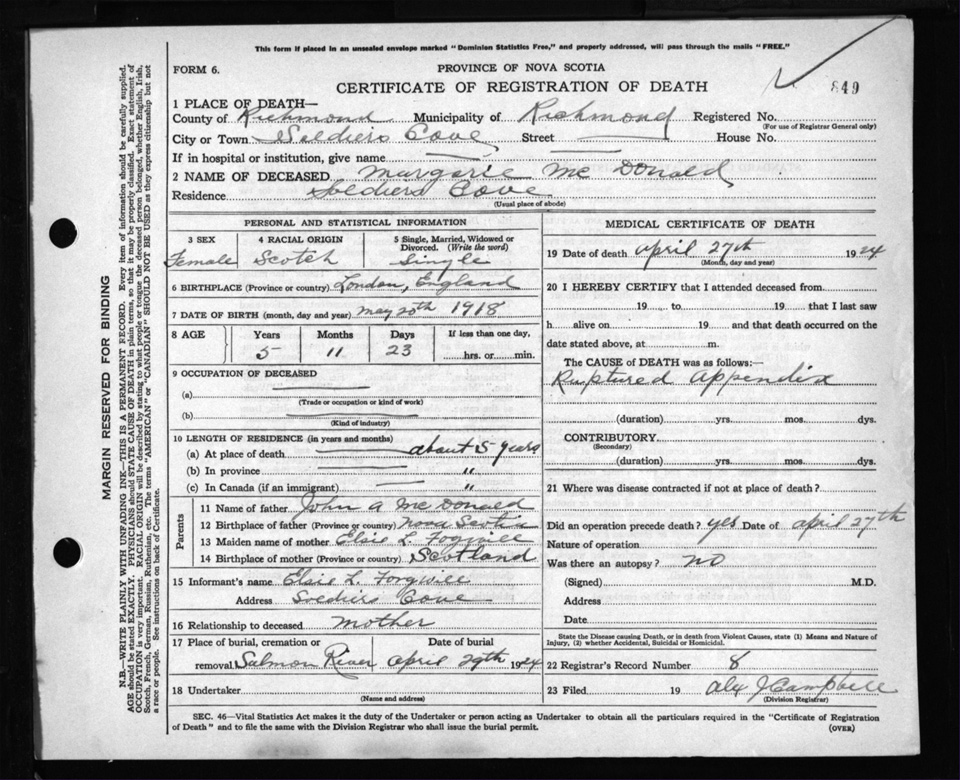 This form if placed in an unsealed envelope marked "Dominion Statistics Free," and properly addressed, will pass through the mails "FREE."
FORM 6.
PROVINCE OF NOVA SCOTIA
849
CERTIFICATE OF REGISTRATION OF DEATH
1 PLACE OF DEATH—
County of Richmond Municipality of Richmond Registered No.
(For use of Registrar General only)
City or Town Soldiers Cove Street House No.
If in hospital or institution, give name
2 NAME OF DECEASED Margarie Mc Donald
Residence Soldiers Cove
(Usual place of abode)
PERSONAL AND STATISTICAL INFORMATION
3 SEX 4 RACIAL ORIGIN 5 Single, Married, Widowed or Divorced. (Write the word)
Female Scotch Single
6 BIRTHPLACE (Province or country) London, England
7 DATE OF BIRTH (month, day and year) May 20th 1918
8 AGE Years Months Days If less than one day,
5 11 23 hrs. or min.
9 OCCUPATION OF DECEASED
(a)
(Trade or occupation or kind of work)
(b)
(Kind of industry)
10 LENGTH OF RESIDENCE (in years and months)
(a) At place of death about 5 years
(b) In province "
(c) In Canada (if an immigrant) "
Parents
11 Name of father John A McDonald
12 Birthplace of father (Province or country) Nova Scotia
13 Maiden name of mother Elsie L. Fogwill
14 Birthplace of mother (Province or country) Scotland
15 Informant's name Elsie L. Forgwill
Address Soldiers Cove
16 Relationship to deceased mother
17 Place of burial, cremation or Date of burial
removal Salmon River April 29th 1924
18 Undertaker
(Name and address)
MEDICAL CERTIFICATE OF DEATH
19 Date of death April 27th 1924
(Month, day and year)
20 I HEREBY CERTIFY that I attended deceased from
19 to 19 that I last saw
h alive on 19 and that death occurred on the
date stated above, at m.
The CAUSE of DEATH was as follows:—
Ruptured Appendix
(duration) yrs. mos. dys.
CONTRIBUTORY
(Secondary)
(duration) yrs. mos. dys.
21 Where was disease contracted if not at place of death?
Did an operation precede death? yes Date of April 27th
Nature of operation
Was there an autopsy? no
(Signed) M.D.
Address
Date
State the Disease causing Death, or in death from Violent Causes, state (1) Means and Nature of
Injury, (2) whether Accidental, Suicidal or Homicidal.
22 Registrar's Record Number 8
23 Filed 19 Alex J Campbell
(Division Registrar)
SEC. 46—Vital Statistics Act makes it the duty of the Undertaker or person acting as Undertaker to obtain all the particulars required in the "Certificate of Registration
of Death" and to file the same with the Division Registrar who shall issue the burial permit. (OVER)
MARGIN RESERVED FOR BINDING
N.B.—WRITE PLAINLY WITH UNFADING INK—THIS IS A PERMANENT RECORD. Every item of information should be carefully supplied.
AGE should be stated EXACTLY. PHYSICIANS should STATE CAUSE OF DEATH in plain terms, so that it may be properly classified. Exact statement of
OCCUPATION is very important. RACIAL ORIGIN will be described by stating to what people or tongue the deceased person belonged, whether English, Irish,
Scotch, French, German, Russian, Ruthenian, etc. The terms "AMERICAN" or "CANADIAN" SHOULD NOT BE USED as they express citizenship but not
a race or people. See instructions on back of Certificate.